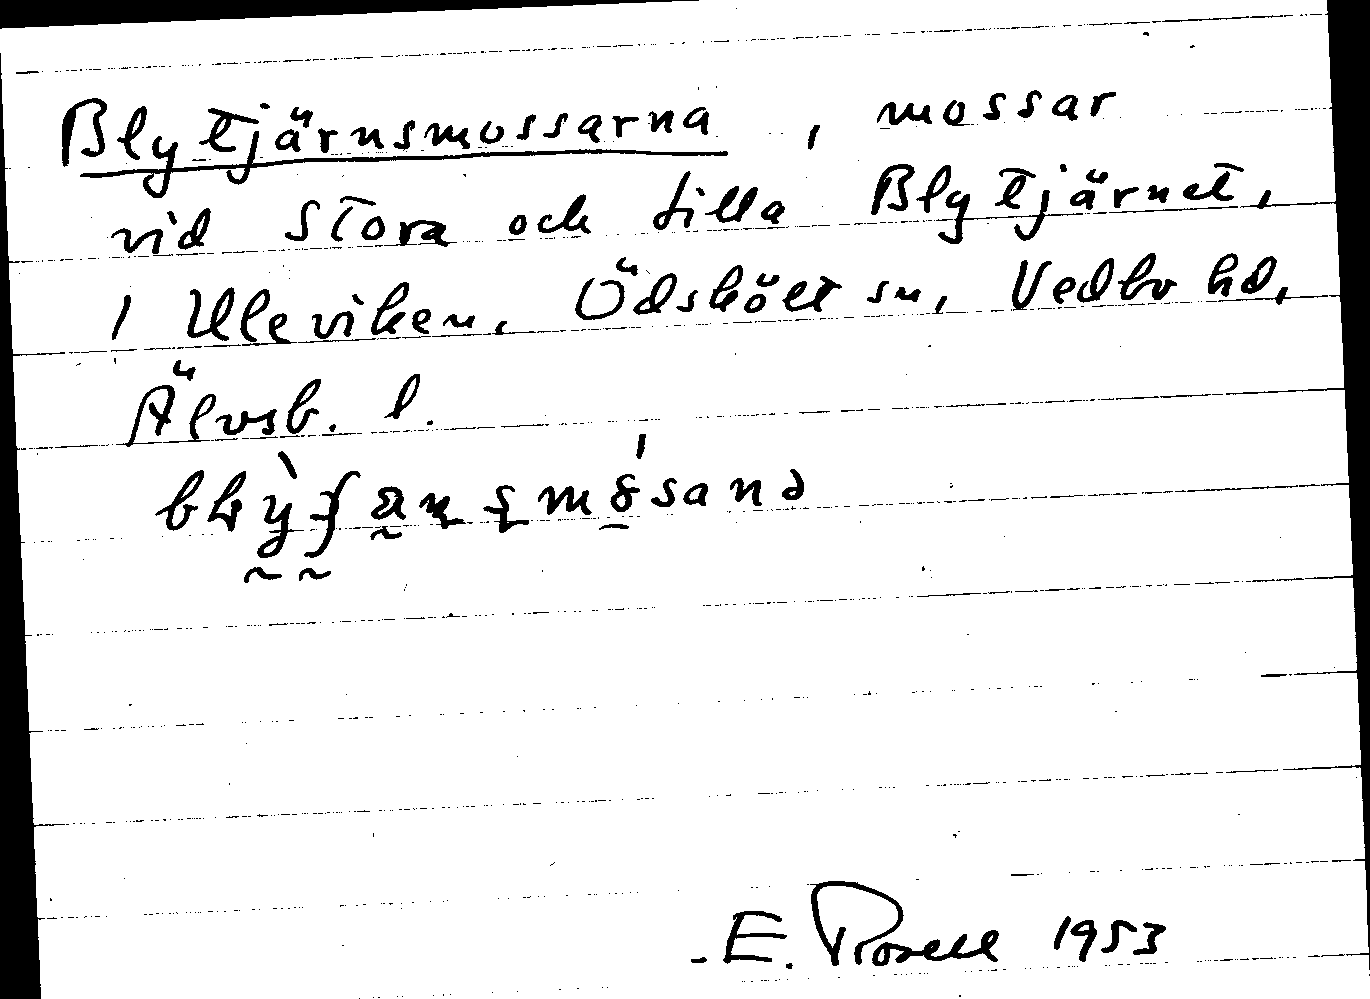 Blytjärnsmossarna, mossar
vid Stora och Lilla Blytjärnet,
i Uleviken. Ödskölt sn, Vedbo hd,
Älvsb. l.
E. Rosell 1953